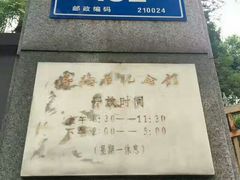 邮政编码 210024
纪念馆
开放时间
上午8:30——11:30
下午2:00——5:00
（星期一休息）